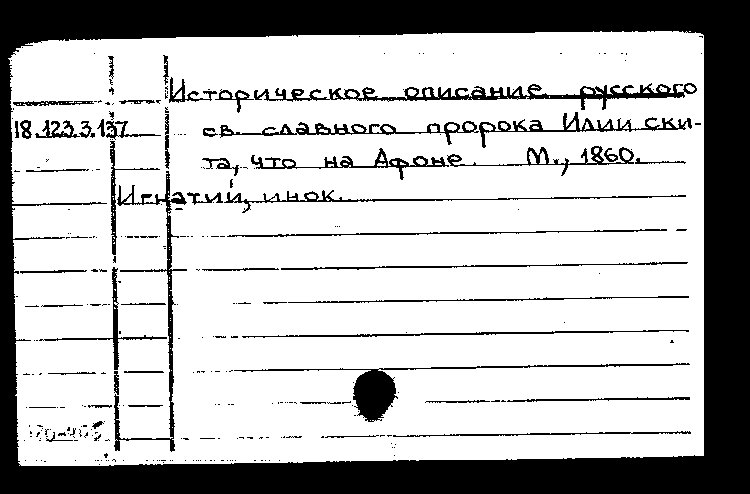 Историческое описание русского
18.123.3.137 св. славного пророка Илии ски-
та, что на Афоне. М., 1860.
Игнатий, инок.